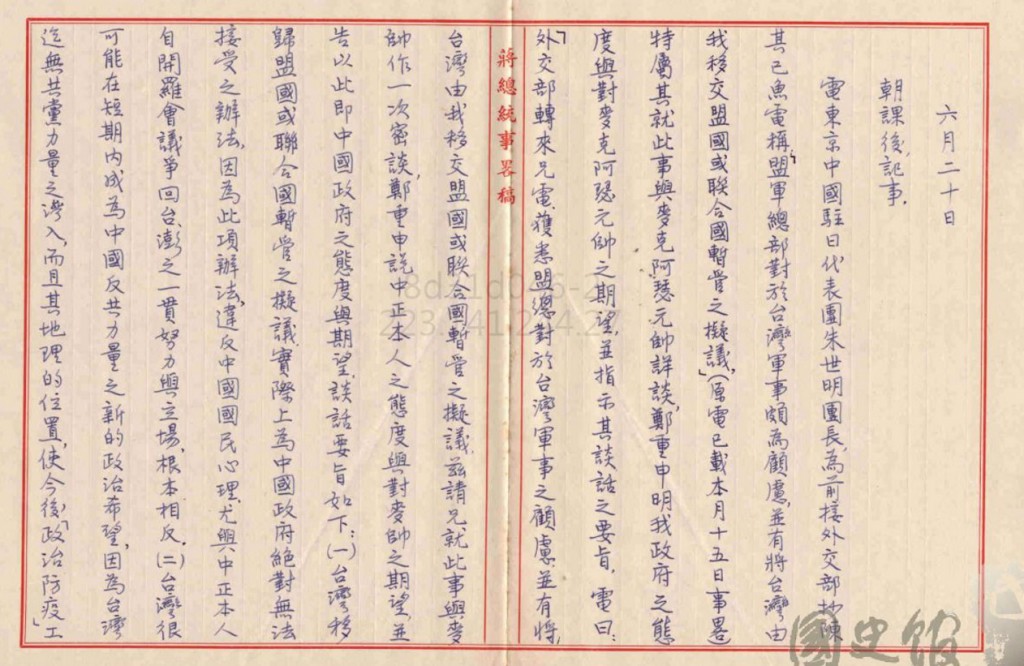 六月二十日
朝課後,記事.
電東京中國駐日代表團朱世明團長,為前接外交部抄陳
其己魚電稱:「盟軍總部對於台灣軍事頗為顧慮,並有將台灣由
我移交盟國或聯合國暫管之擬議」,(原電已載本月十五日事畧
特屬其就此事與麥克阿瑟元帥詳談,鄭重申明我政府之態
度與對麥克阿瑟元帥之期望,並指示其談話之要旨,電曰:
「外交部轉來兄電,獲悉盟總對於台灣軍事之顧慮並有將
蔣總統事畧稿
台灣由我移交盟國或聯合國暫管之擬議,茲請兄就此事與麥
帥作一次密談,鄭重申說中正本人之態度與對麥帥之期望,並
告以此即中國政府之態度與期望,談話要旨如下:(一)台灣移
歸盟國或聯合國暫管之擬議,實際上為中國政府絕對無法
接受之辦法,因為此項辦法,違反中國國民心理,尤與中正本人
自開羅會議爭回台、澎之一貫努力與立場,根本相反.(二)台灣很
可能在短期內成為中國反共力量之新的政治希望,因為台灣
迄無共黨力量之滲入,而且其地理的位置,使今後「政治防疫」工
國史館